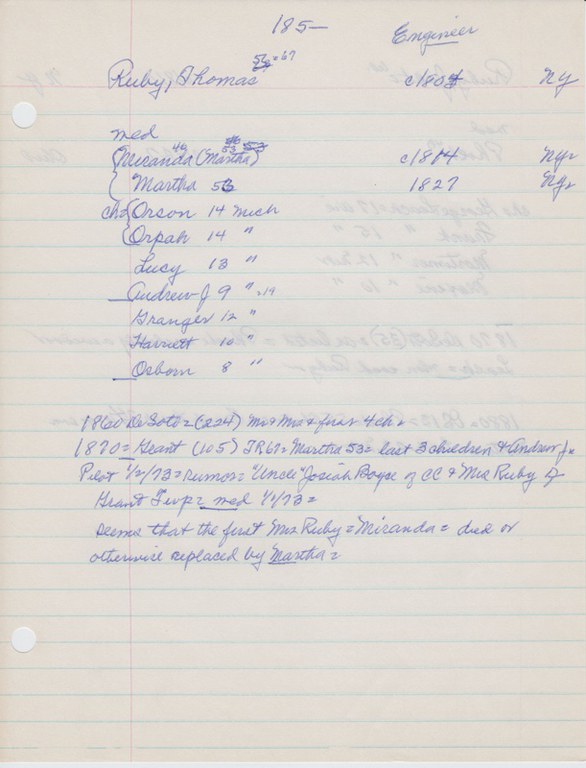 185— Engineer
56=67
Ruby, Thomas c1804 NY
med
Miranda 46 (Martha) 53 c1814 NY
Martha 53 1827 NY
chd Orson 14 Mich
Orpah 14 "
Lucy 13 "
Andrew J 9 " =19
Granger 12 "
Harriett 10 "
Osborn 8 "
1860 DeSoto = (224) Mr & Mrs & first 4 ch =
1870 = Grant (105) TR67= Martha 53 = last 3 children & Andrew J=
Pilot 1/2/73 = rumor = "Uncle" Josiah Boyce of CC & Mrs Ruby of
Grant Twp = med 1/1/73 =
seems that the first Mrs Ruby = Miranda = died or
otherwise replaced by Martha =